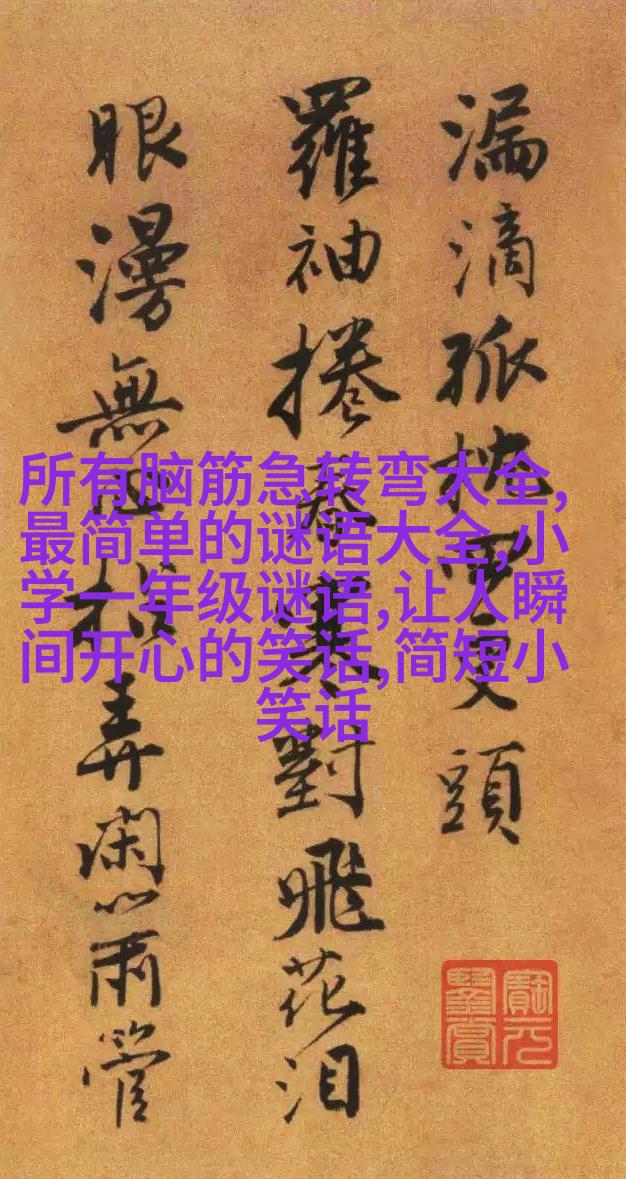 漏滴孤枕四更頭
羅袖捲春寒對飛花泪
眼漫無心弄閑心兩管
所有脑筋急转弯大全,
最简单的谜语大全,小
学一年级谜语,让人瞬
间开心的笑话,简短小
笑话